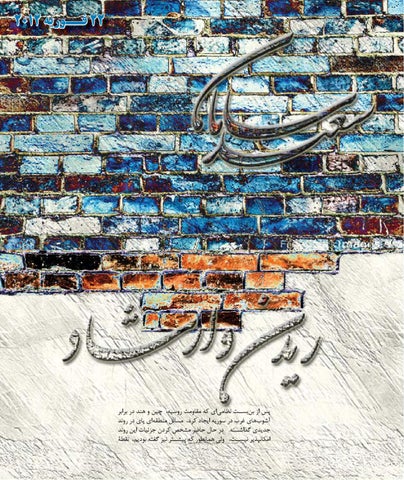 ۲۲ فوریه ۲۰۱۲
سعید سامان
ریدن و ارشاد
پس از بن‌بست نظامی‌ای که مقاومت روسیه، چین و هند در برابر
آشوب‌های غرب در سوریه ایجاد کرد، مسائل منطقه‌ای پای در روند
جدیدی گذاشته. در حال حاضر مشخص کردن جزئیات این روند
امکانپذیر نیست. ولی همانطور که پیشتر نیز گفته بودیم، نقطة